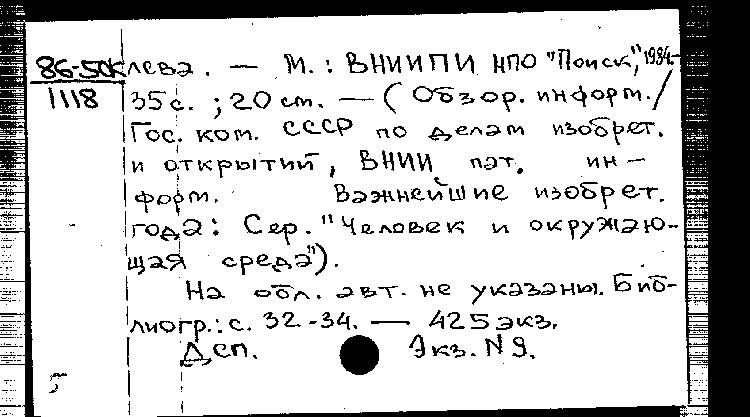 86-50к лева. — М.: ВНИИПИ НПО "Поиск", 1984.-
1118 35с.; 20 см. — (Обзор. информ./
Гос. ком. СССР по делам изобрет.
и открытий, ВНИИ пат. ин-
форм. Важнейшие изобрет.
года: Сер. "Человек и окружаю-
щая среда").
На обл. авт. не указаны. Биб-
лиогр.: с. 32-34. — 425 экз.
Дсп. Экз. N 9.